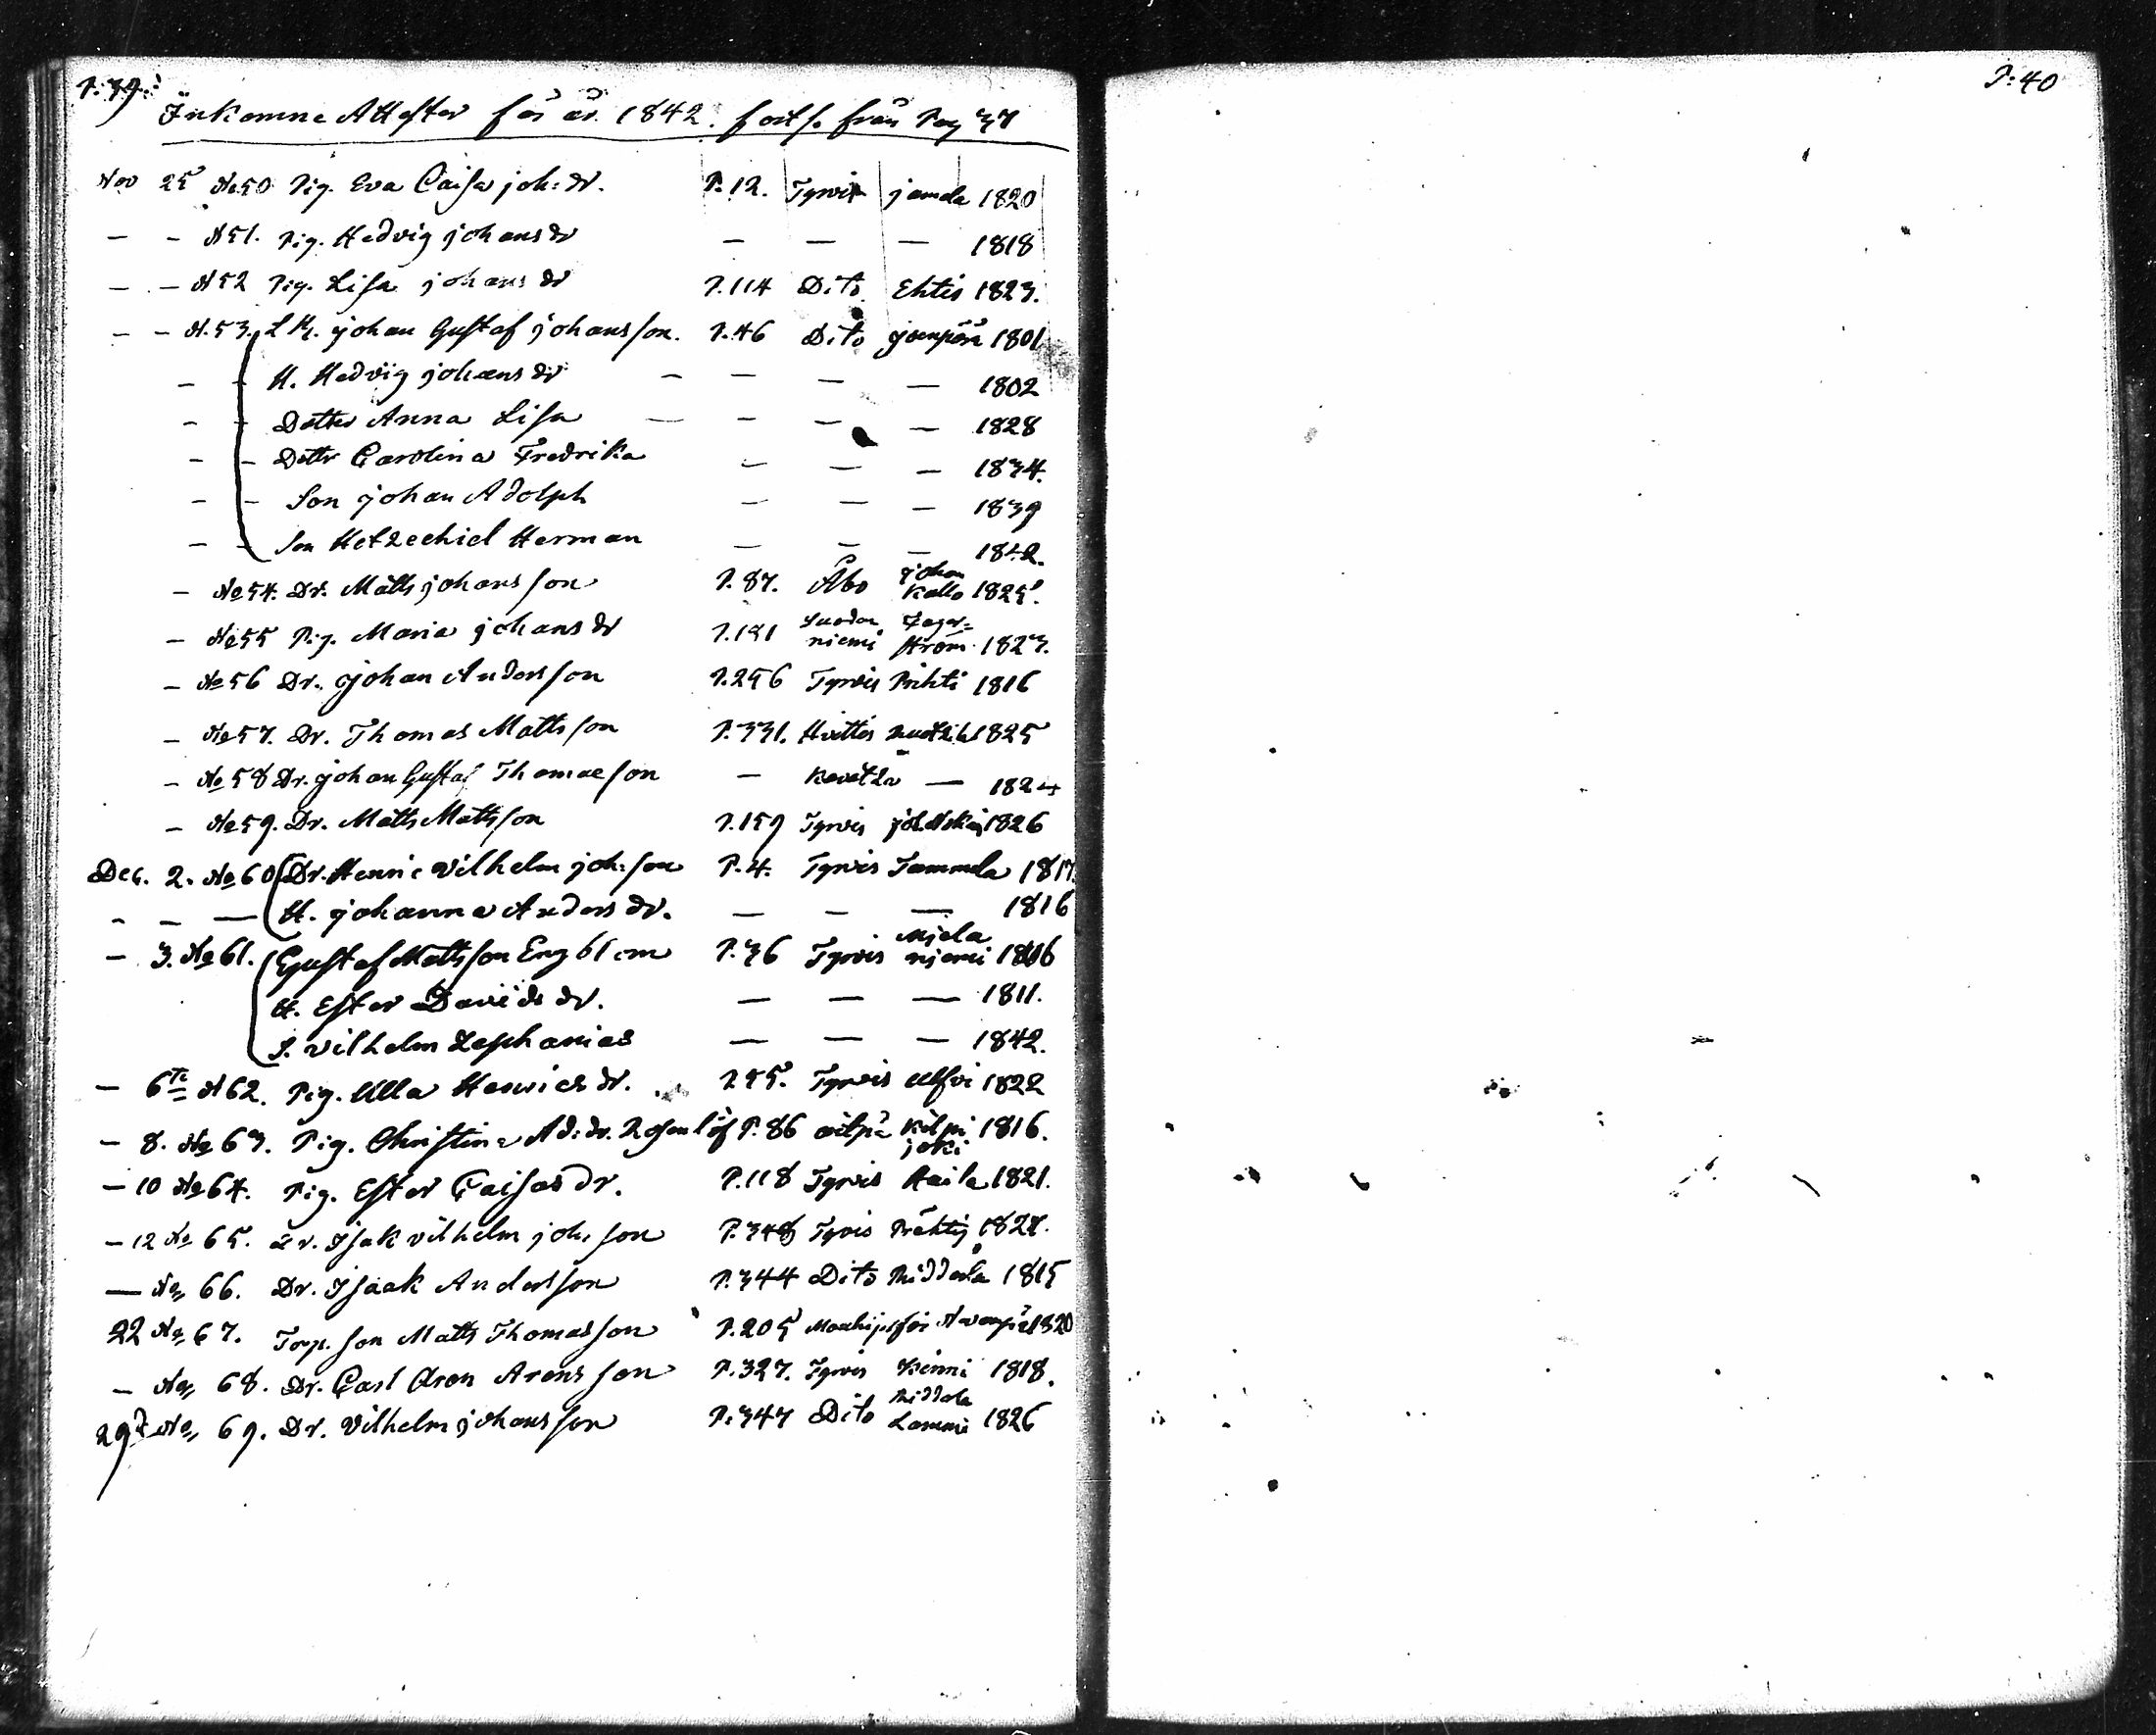 P. 39.
Inkomne Attester för år 1842. forts. från Pag 37
Nov 25 No 50 Pig. Eva Caisa joh: dr. P. 12. Tyrvis jamala 1820
— — N 51. Pig. Hedvig johans dr — — — 1818
— — N 52 Pig. Lisa johans dr P. 114 Dito Ehtis 1823.
— — N. 53. johan Gustaf johansson. P. 46 Dito joenpää 1801
— — H. Hedvig johans dr — — — — 1802
— — Dotter Anna Lisa — — — — 1828
— — Dottr Carolina Fredrika — — — 1834.
— — Son johan Adolph — — — 1839
— — Son Hetzechiel Herman — — — 1842.
— No 54. Dr. Matts johansson P. 87. Åbo johan Kallo 1825.
— No 55 Pig. Maria johans dr P. 181 Suodenniemi Fager=ström 1823.
— No 56 Dr. johan Andersson P. 256 Tyrvis Prihti 1816
— No 57. Dr. Thomas Mattsson P. 331. Hvittis 1825
— No 58 Dr. johan Gustaf Thomasson — — 1824
— No 59. Dr. Matts Mattsson P. 159 Tyrvis 1826
Dec. 2. No 60 Dr. Henric Vilhelm joh: son P. 4. Tyrvis Tammula 1817.
— — — H. johanna Anders dr. — — — 1816
— 3. No 61. Gustaf Mattsson Englom P. 36 Tyrvis niemi 1806
H. Ester Davids dr. — — — 1811.
S. Vilhelm Zephanias — — — 1842.
— 6te N 62. Pig. Ulla Henrics dr. P. 55. Tyrvis Ulfvi 1822
— 8. No 63. Pig. Christina Ad: dr. Rosenlöf P. 86 Kilpijoki 1816.
— 10 No 64. Pig. Ester Caisas dr. P. 118 Tyrvis Raila 1821.
— 12 No 65. Dr. Isak vilhelm joh. son P. 348 Tyrvis 1827.
— No 66. Dr. Isaak Andersson P. 344 Dito Riddala 1815
22 No 67. Torp. son Matts Thomasson P. 205 1820
— No 68. Dr. Carl Aron Arons son P. 327. Tyrvis Kinni 1818.
29d No 69. Dr. Vilhelm johansson P. 347 Dito Riddala Lammi 1826
P: 40